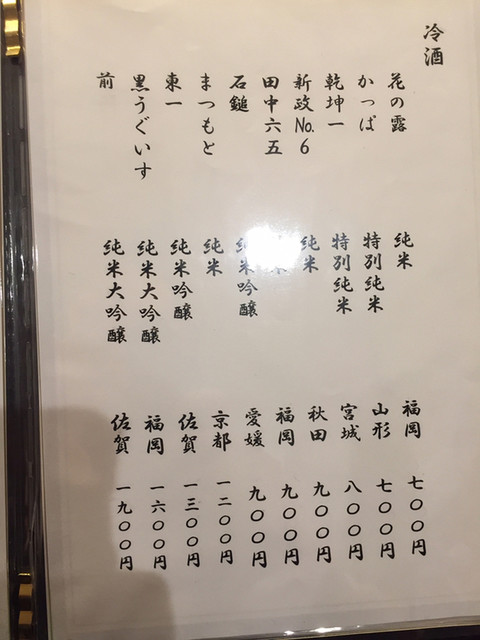 冷酒
花の露 純米 福岡 七〇〇円
かっぱ 特別純米 山形 七〇〇円
乾坤一 特別純米 宮城 八〇〇円
新政No.6 純米 秋田 九〇〇円
田中六五 福岡 九〇〇円
石鎚 純米吟醸 愛媛 九〇〇円
まつもと 純米 京都 一二〇〇円
東一 純米吟醸 佐賀 一三〇〇円
黒うぐいす 純米大吟醸 福岡 一六〇〇円
前 純米大吟醸 佐賀 一九〇〇円